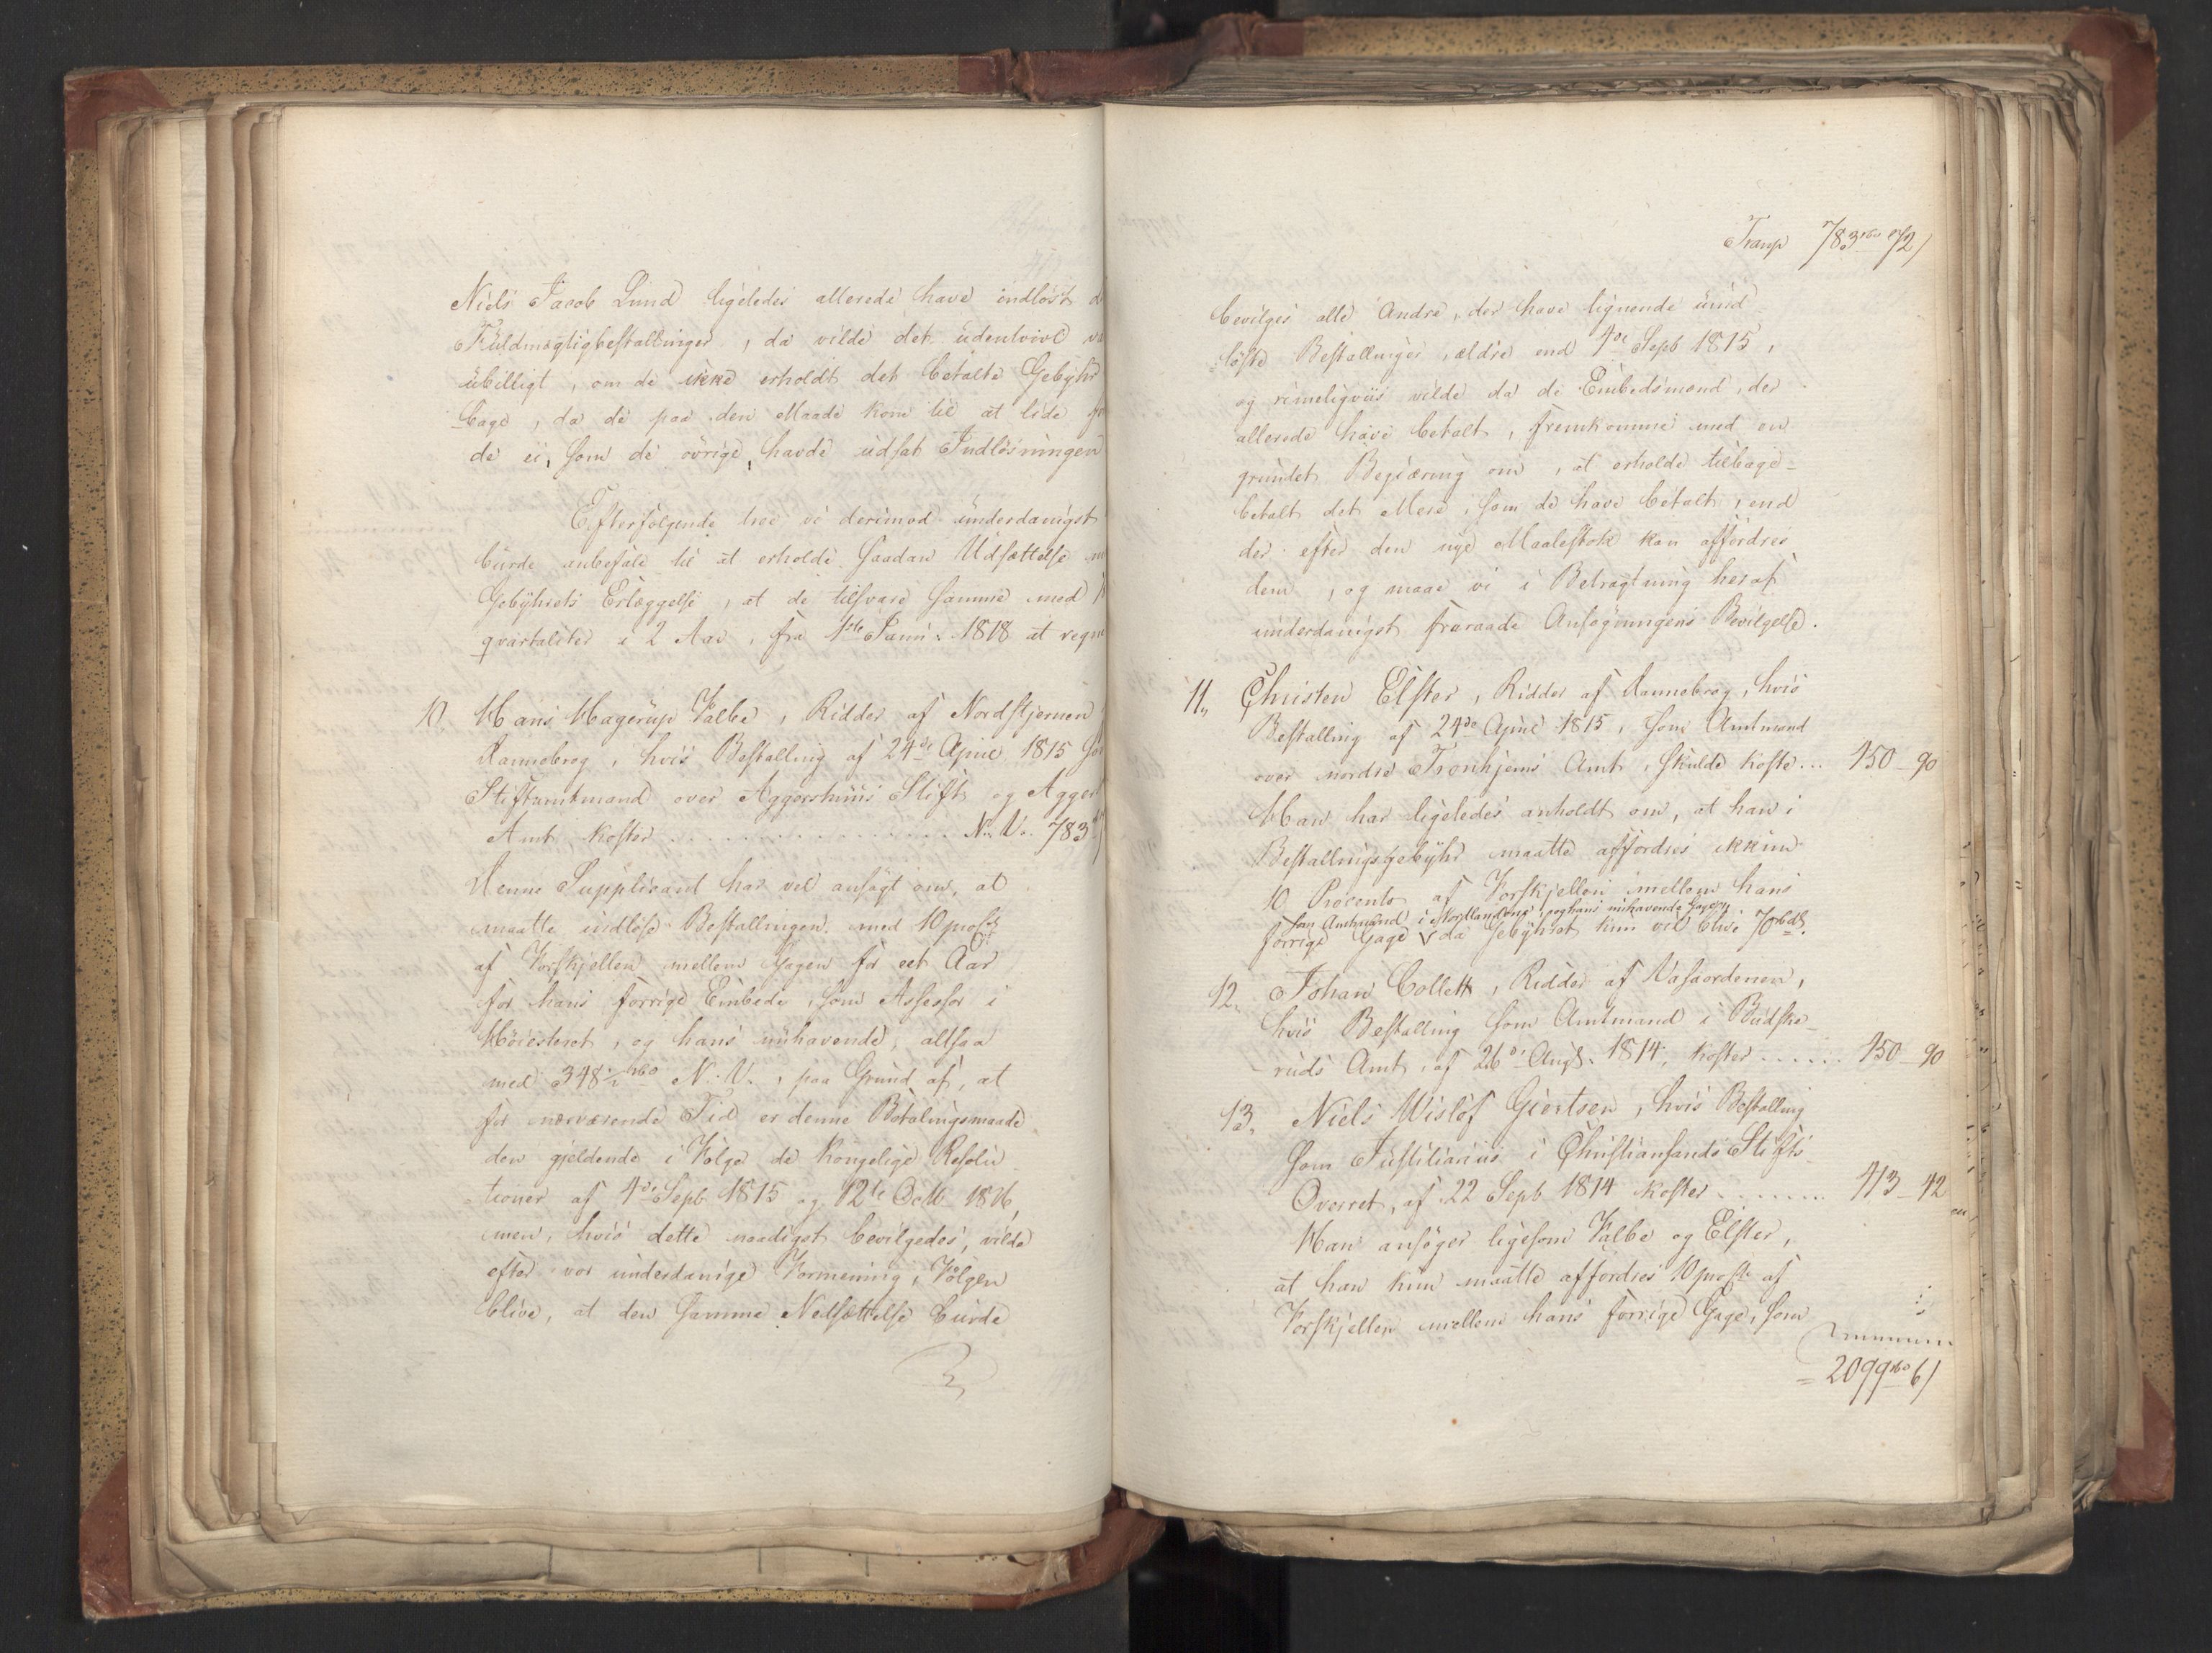 Niels Jacob Lund ligeledes allerede have indløst
Fuldmægtigbestallinger, da vilde det udentvivl
ubilligt, om de ikke erholdt det betalte Gebyhr
bage, da de paa den Maade kom til at lide
de ei, som de øvrige, havde udsat Indløsningen
Efterfølgende troe vi derimod underdanigst
burde anbefale til at erholde saadan Udsættelse
Gebyhrets Erlæggelse, at de tilsvare samme med
qvartaliter i 2 Aar, fra 1ste Janu. 1818 at regne
10. Hans Hagerup Falbe, Ridder af Nordstjernen
Dannebrog, hvis Bestalling af 24de April 1815
Stiftamtmand over Aggershuus Stift og Agger
Amt koster . . . . . . . . . N. V. 783
Denne Supplicant har vel ansøgt om, at
maatte indløse Bestallingen med 10 proCt
af Forskjellen mellem Gagen for eet Aar
for hans forrige Embede, som Assessor i
Høiesteret, og hans nuhavende, altsaa
med 348½ rbd N. V., paa Grund af, at
for nærværende Tid er denne Betalingsmaade
den gjeldende i Følge de Kongelige Resolu-
tioner af 1de Sept 1815 og 12te Octb 1816,
men, hvis dette naadigst bevilgedes, vilde
efter vor underdanige Formening, Følgen
blive, at den samme Nedsættelse burde
Transp 783 rbd 72
bevilges alle Andre, der have lignende uind-
løste Bestallinger, ældre end 1de Sept 1815,
og rimeligviis vilde da de Embedsmænd, der
allerede have betalt, fremkomme med en
grundet Begjæring om, at erholde tilbage-
betalt det Mere, som de have betalt, end
der efter den nye Maalestok kan affordres
dem, og maae vi i Betragtning heraf
underdanigst fraraade Ansøgningens Bevilgelse.
11. Christen Elster, Ridder af Dannebrog, hvis
Bestalling af 24de April 1815, som Amtmand
over nordre Tronhjems Amt, skulde koste... 150 - 90
Han har ligeledes anholdt om, at han i
Bestallingsgebyhr maatte affordres ikkun
10 Procento af Forskjellen mellem hans
som Amtmand i Nordlandene, og hans nuhavende Gage,
forrige Gage da Gebyhret kun vil blive 70 rbd.
12. Johan Collett, Ridder af Vasaordenen,
hvis Bestalling som Amtmand i Budske-
ruds Amt, af 26de Augt. 1814, koster . . . . . . 150 - 90
13. Niels Wisløf Giertsen, hvis Bestalling
som Justitiarius i Christiansands Stifts-
Overret, af 22 Sept 1814 koster . . . . . . . 413 - 42
Han ansøger ligesom Falbe og Elster,
at han kun maatte affordres 10 proCt. af
Forskjellen mellem hans forrige Gage, som
= 2099 rbd 6